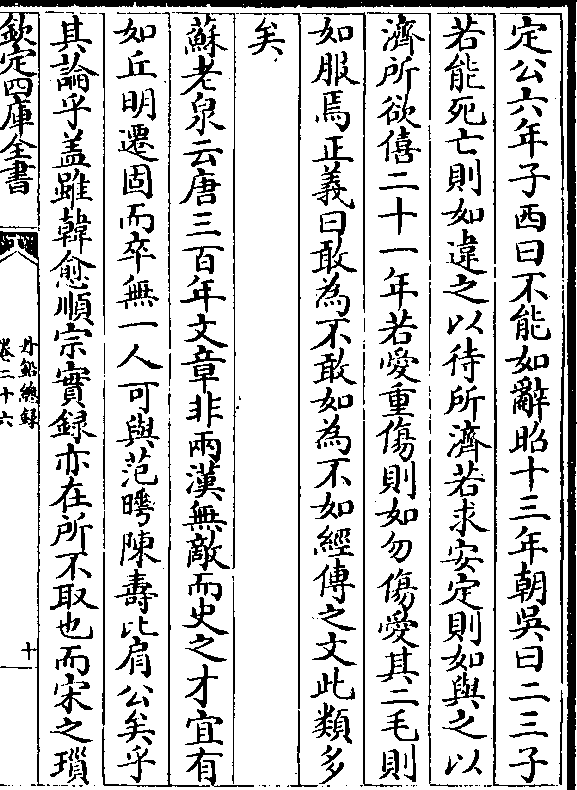 定公六年子西曰不能如辭昭十三年朝吳曰二三子
若能死亡則如違之以待所濟若求安定則如與之以
濟所欲僖二十一年若愛重傷則如勿傷愛其二毛則
如服焉正義曰敢為不敢如為不如經傳之文此類多
矣
蘇老泉云唐三百年文章非兩漢無敵而史之才宜有
如丘明遷固而卒無一人可與范曄陳壽比肩公矣乎
其論乎盖雖韓愈順宗實録亦在所不取也而宋之瑣
欽定四庫全書
丹鉛總録
卷二十六
十